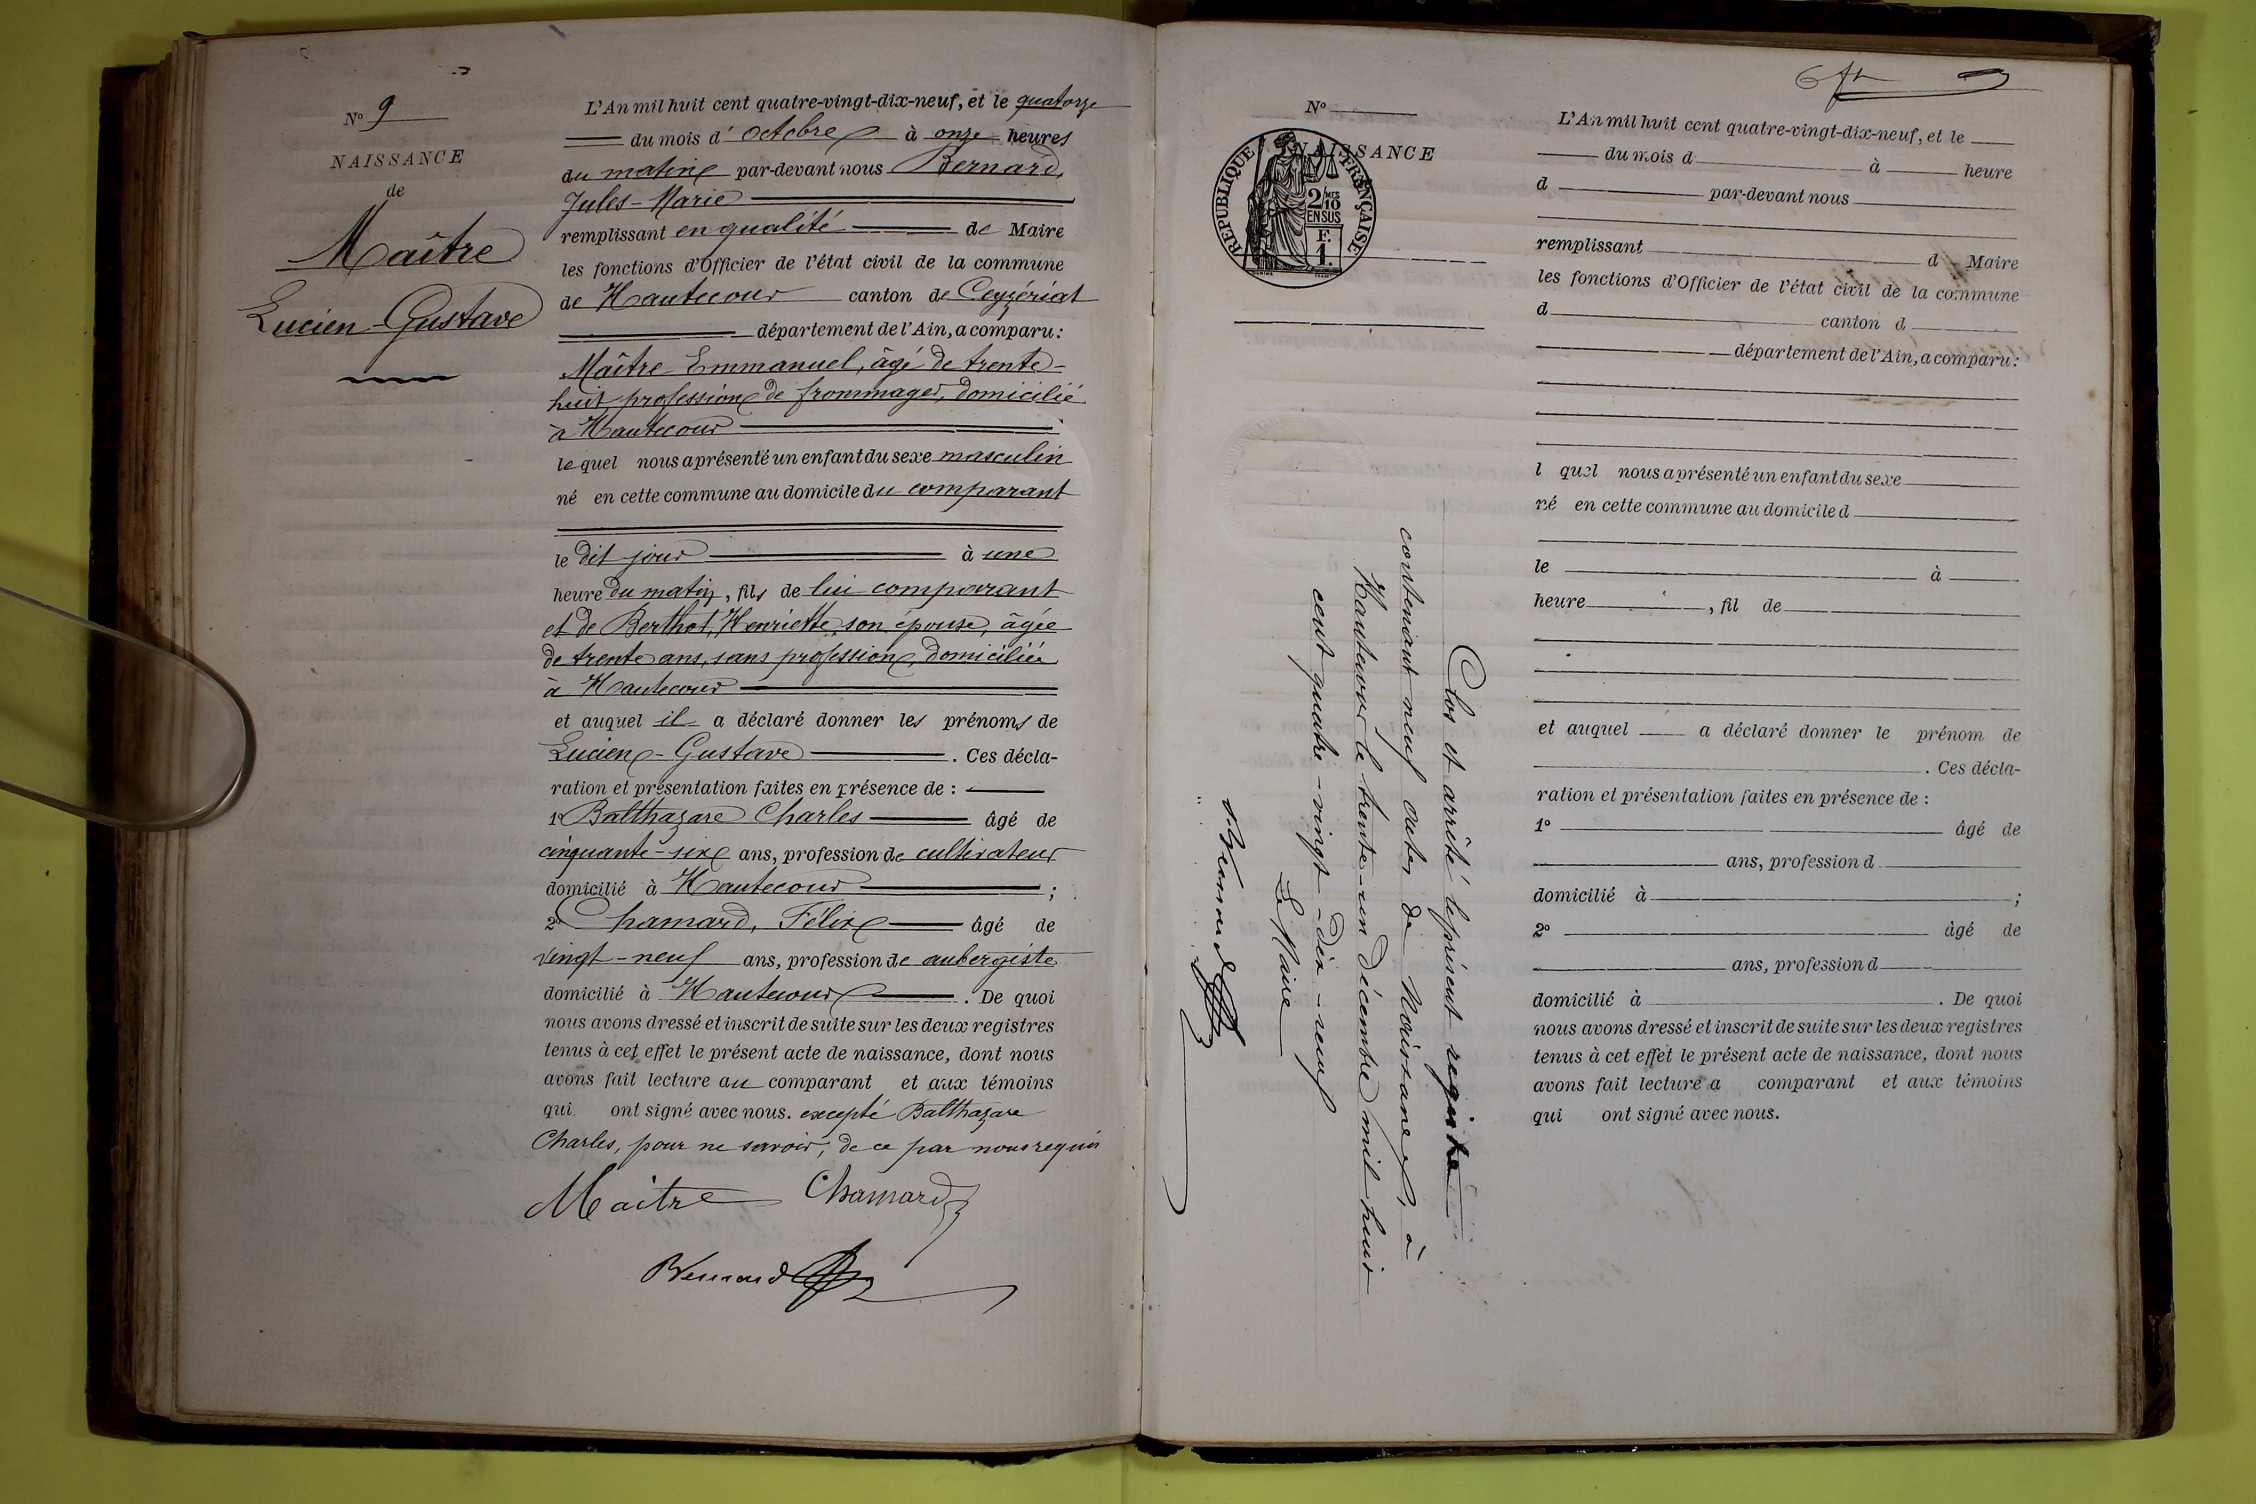 N° 9
NAISSANCE
de
Maître
Lucien-Gustave
L'An mil huit cent quatre-vingt-dix-neuf, et le quatorze
du mois d'octobre à onze heures
du matin par-devant nous Bernard,
Jules-Marie
remplissant en qualité de Maire
les fonctions d'Officier de l'état civil de la commune
de Hautecour canton de Ceyzériat
département de l'Ain, a comparu:
Maître Emmanuel, âgé de trente-
huit profession de frommager, domicilié
à Hautecour
lequel nous a présenté un enfant du sexe masculin
né en cette commune au domicile du comparant
le dit jour à une
heure du matin, fils de lui comparant
et de Berthet, Henriette son épouse, âgée
de trente ans, sans profession, domiciliée
à Hautecour
et auquel il a déclaré donner les prénoms de
Lucien-Gustave. Ces décla-
ration et présentation faites en présence de :
1° Balthazare Charles âgé de
cinquante-six ans, profession de cultivateur
domicilié à Hautecour ;
2° Chamard, Félix âgé de
vingt-neuf ans, profession de aubergiste
domicilié à Hautecour. De quoi
nous avons dressé et inscrit de suite sur les deux registres
tenus à cet effet le présent acte de naissance, dont nous
avons fait lecture au comparant et aux témoins
qui ont signé avec nous. excepté Balthazare
Charles, pour ne savoir, de ce par nous requis
Maitre Chamard
Bernard
N°
NAISSANCE
RÉPUBLIQUE FRANÇAISE
2/10 MES
EN SUS
F.
1.
Clos et arrêté le présent registre
contenant neuf actes de Naissance, à
Hautecour le trente-un décembre mil huit
cent quatre-vingt-dix-neuf
Le Maire
Bernard
L'An mil huit cent quatre-vingt-dix-neuf, et le
du mois d à heure
d par-devant nous
remplissant d Maire
les fonctions d'Officier de l'état civil de la commune
d canton d
département de l'Ain, a comparu:
l quel nous a présenté un enfant du sexe
né en cette commune au domicile d
le à
heure , fil de
et auquel a déclaré donner le prénom de
. Ces décla-
ration et présentation faites en présence de :
1° âgé de
ans, profession d
domicilié à ;
2° âgé de
ans, profession d
domicilié à . De quoi
nous avons dressé et inscrit de suite sur les deux registres
tenus à cet effet le présent acte de naissance, dont nous
avons fait lecture a comparant et aux témoins
qui ont signé avec nous.